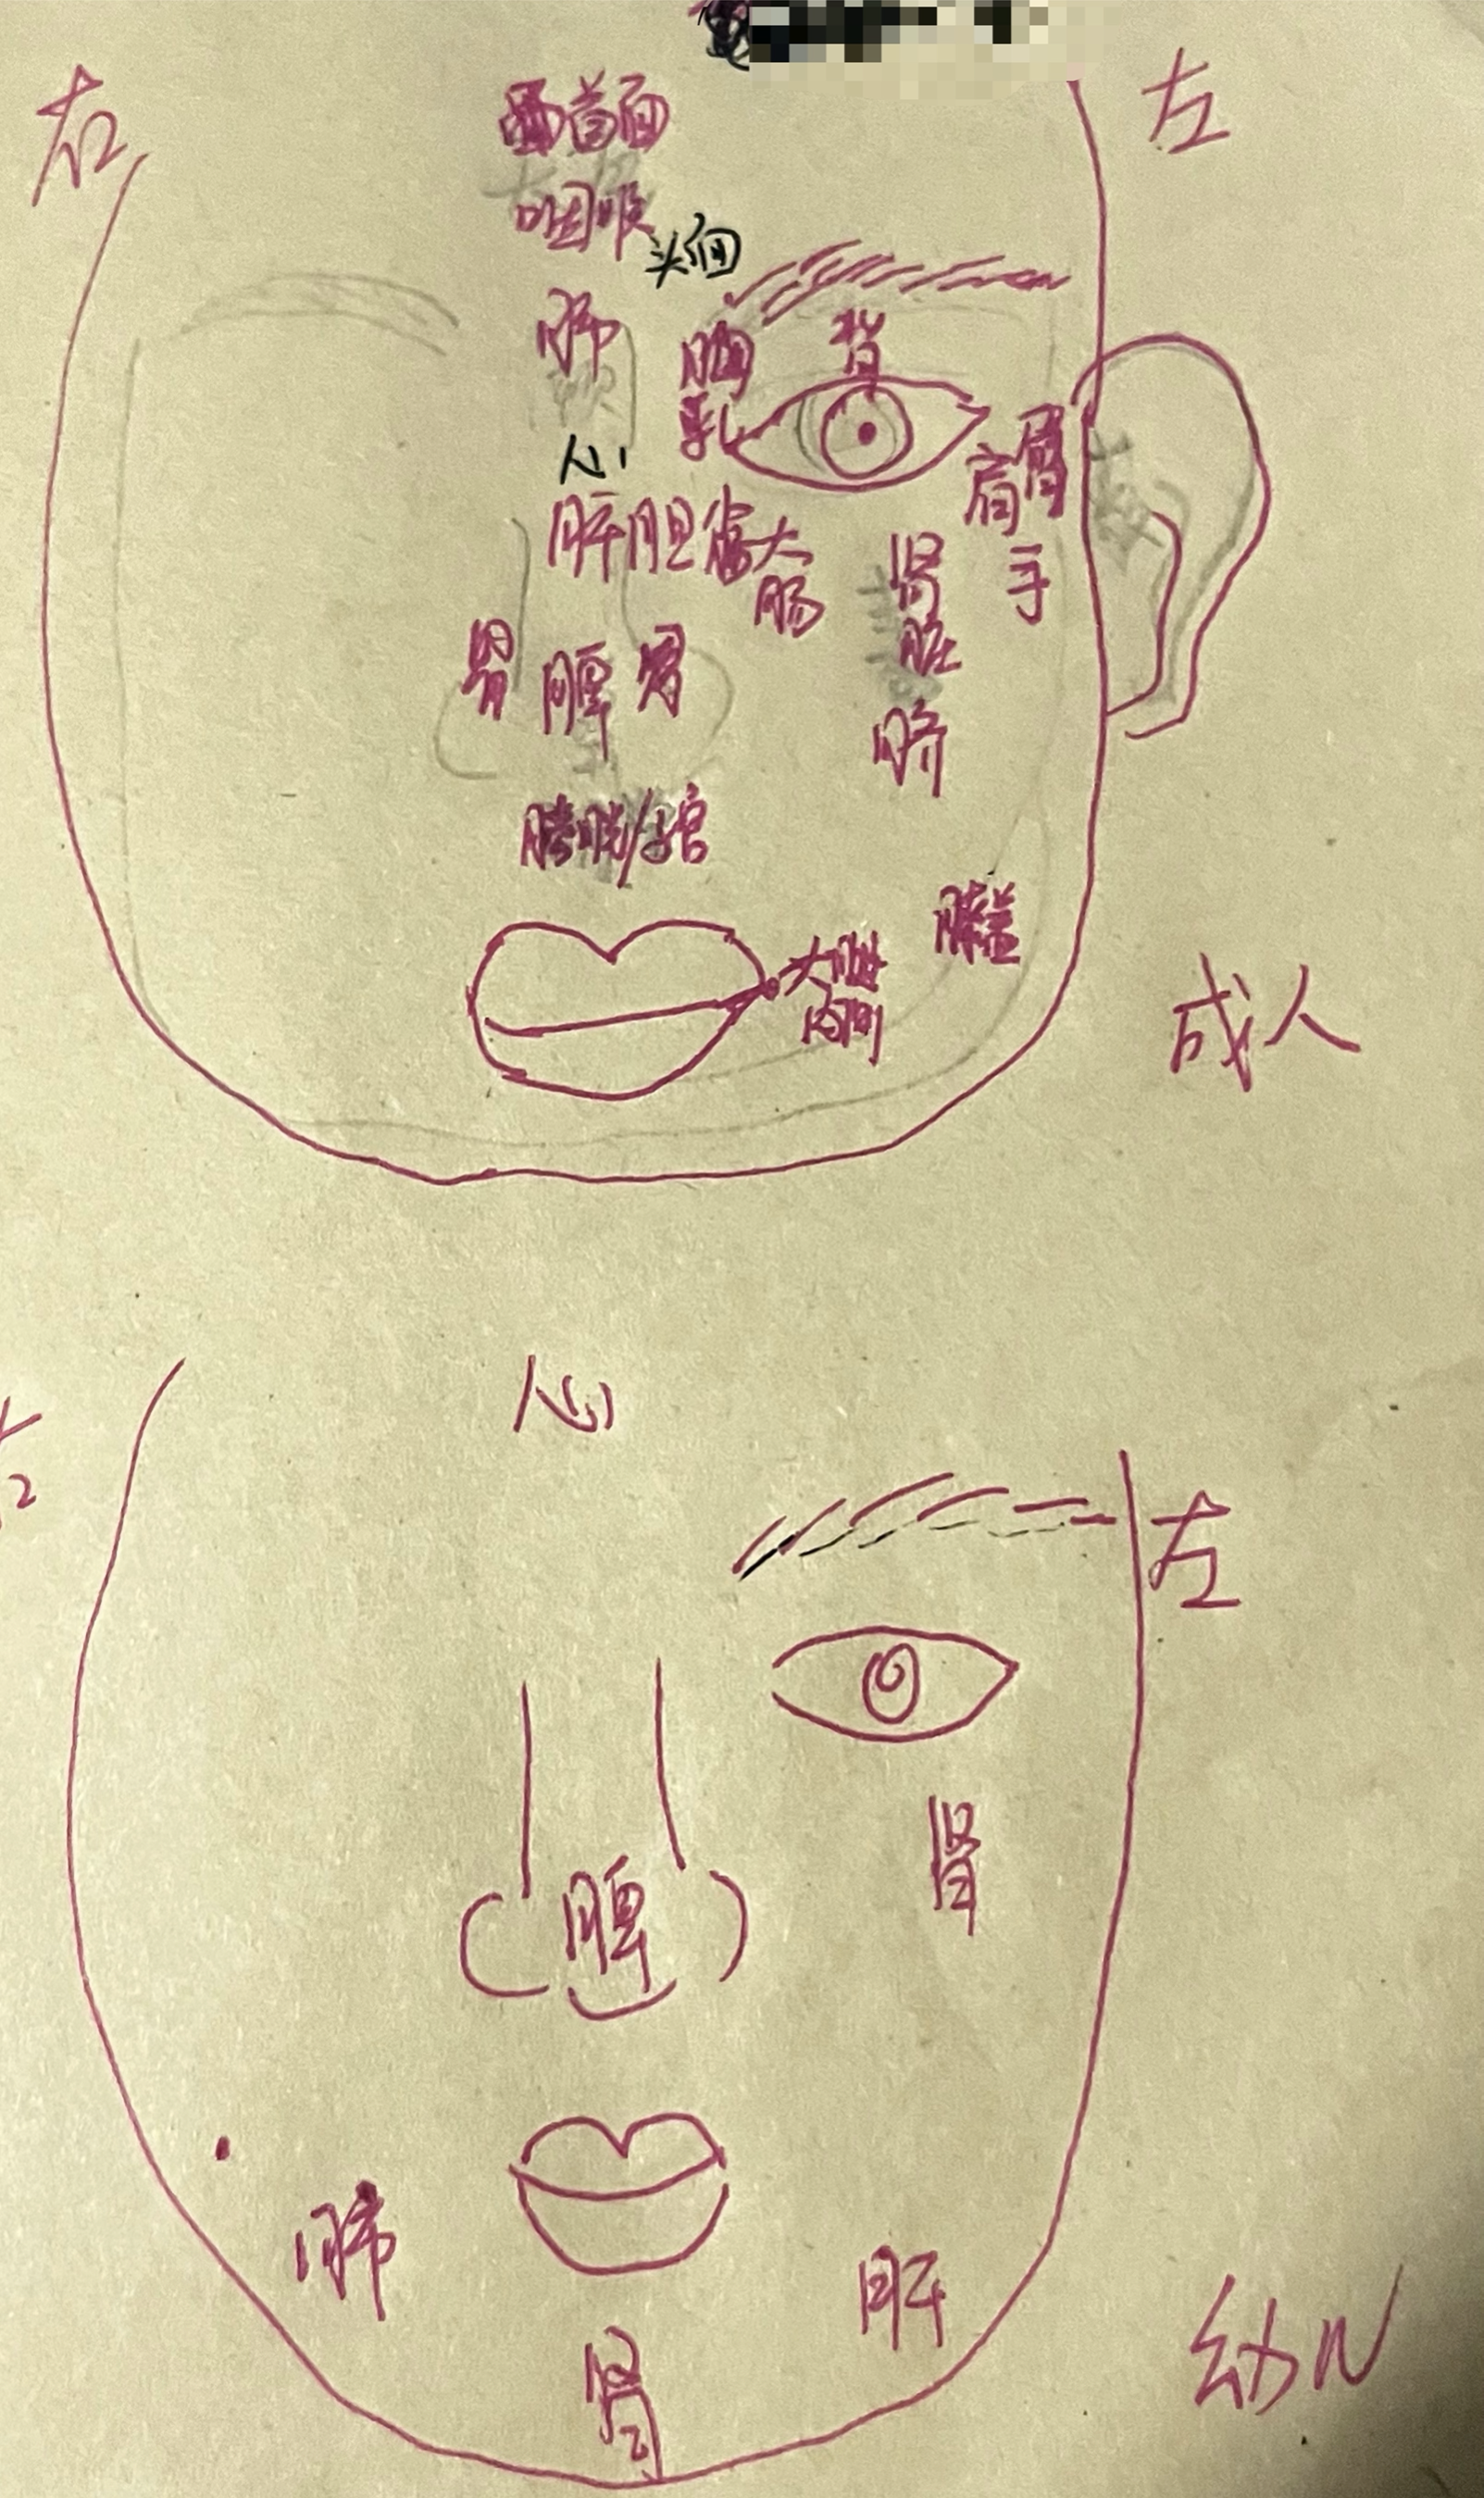 右
左
首面
咽喉
肺
胸
乳
背
心
肝胆
大
肠
肩
手
肾
脏
脐
胃 脾 胃
膀胱/子宫
膝盖
大腿
内侧
成人
心
左
肾
脾
肺
肝
肾
幼儿